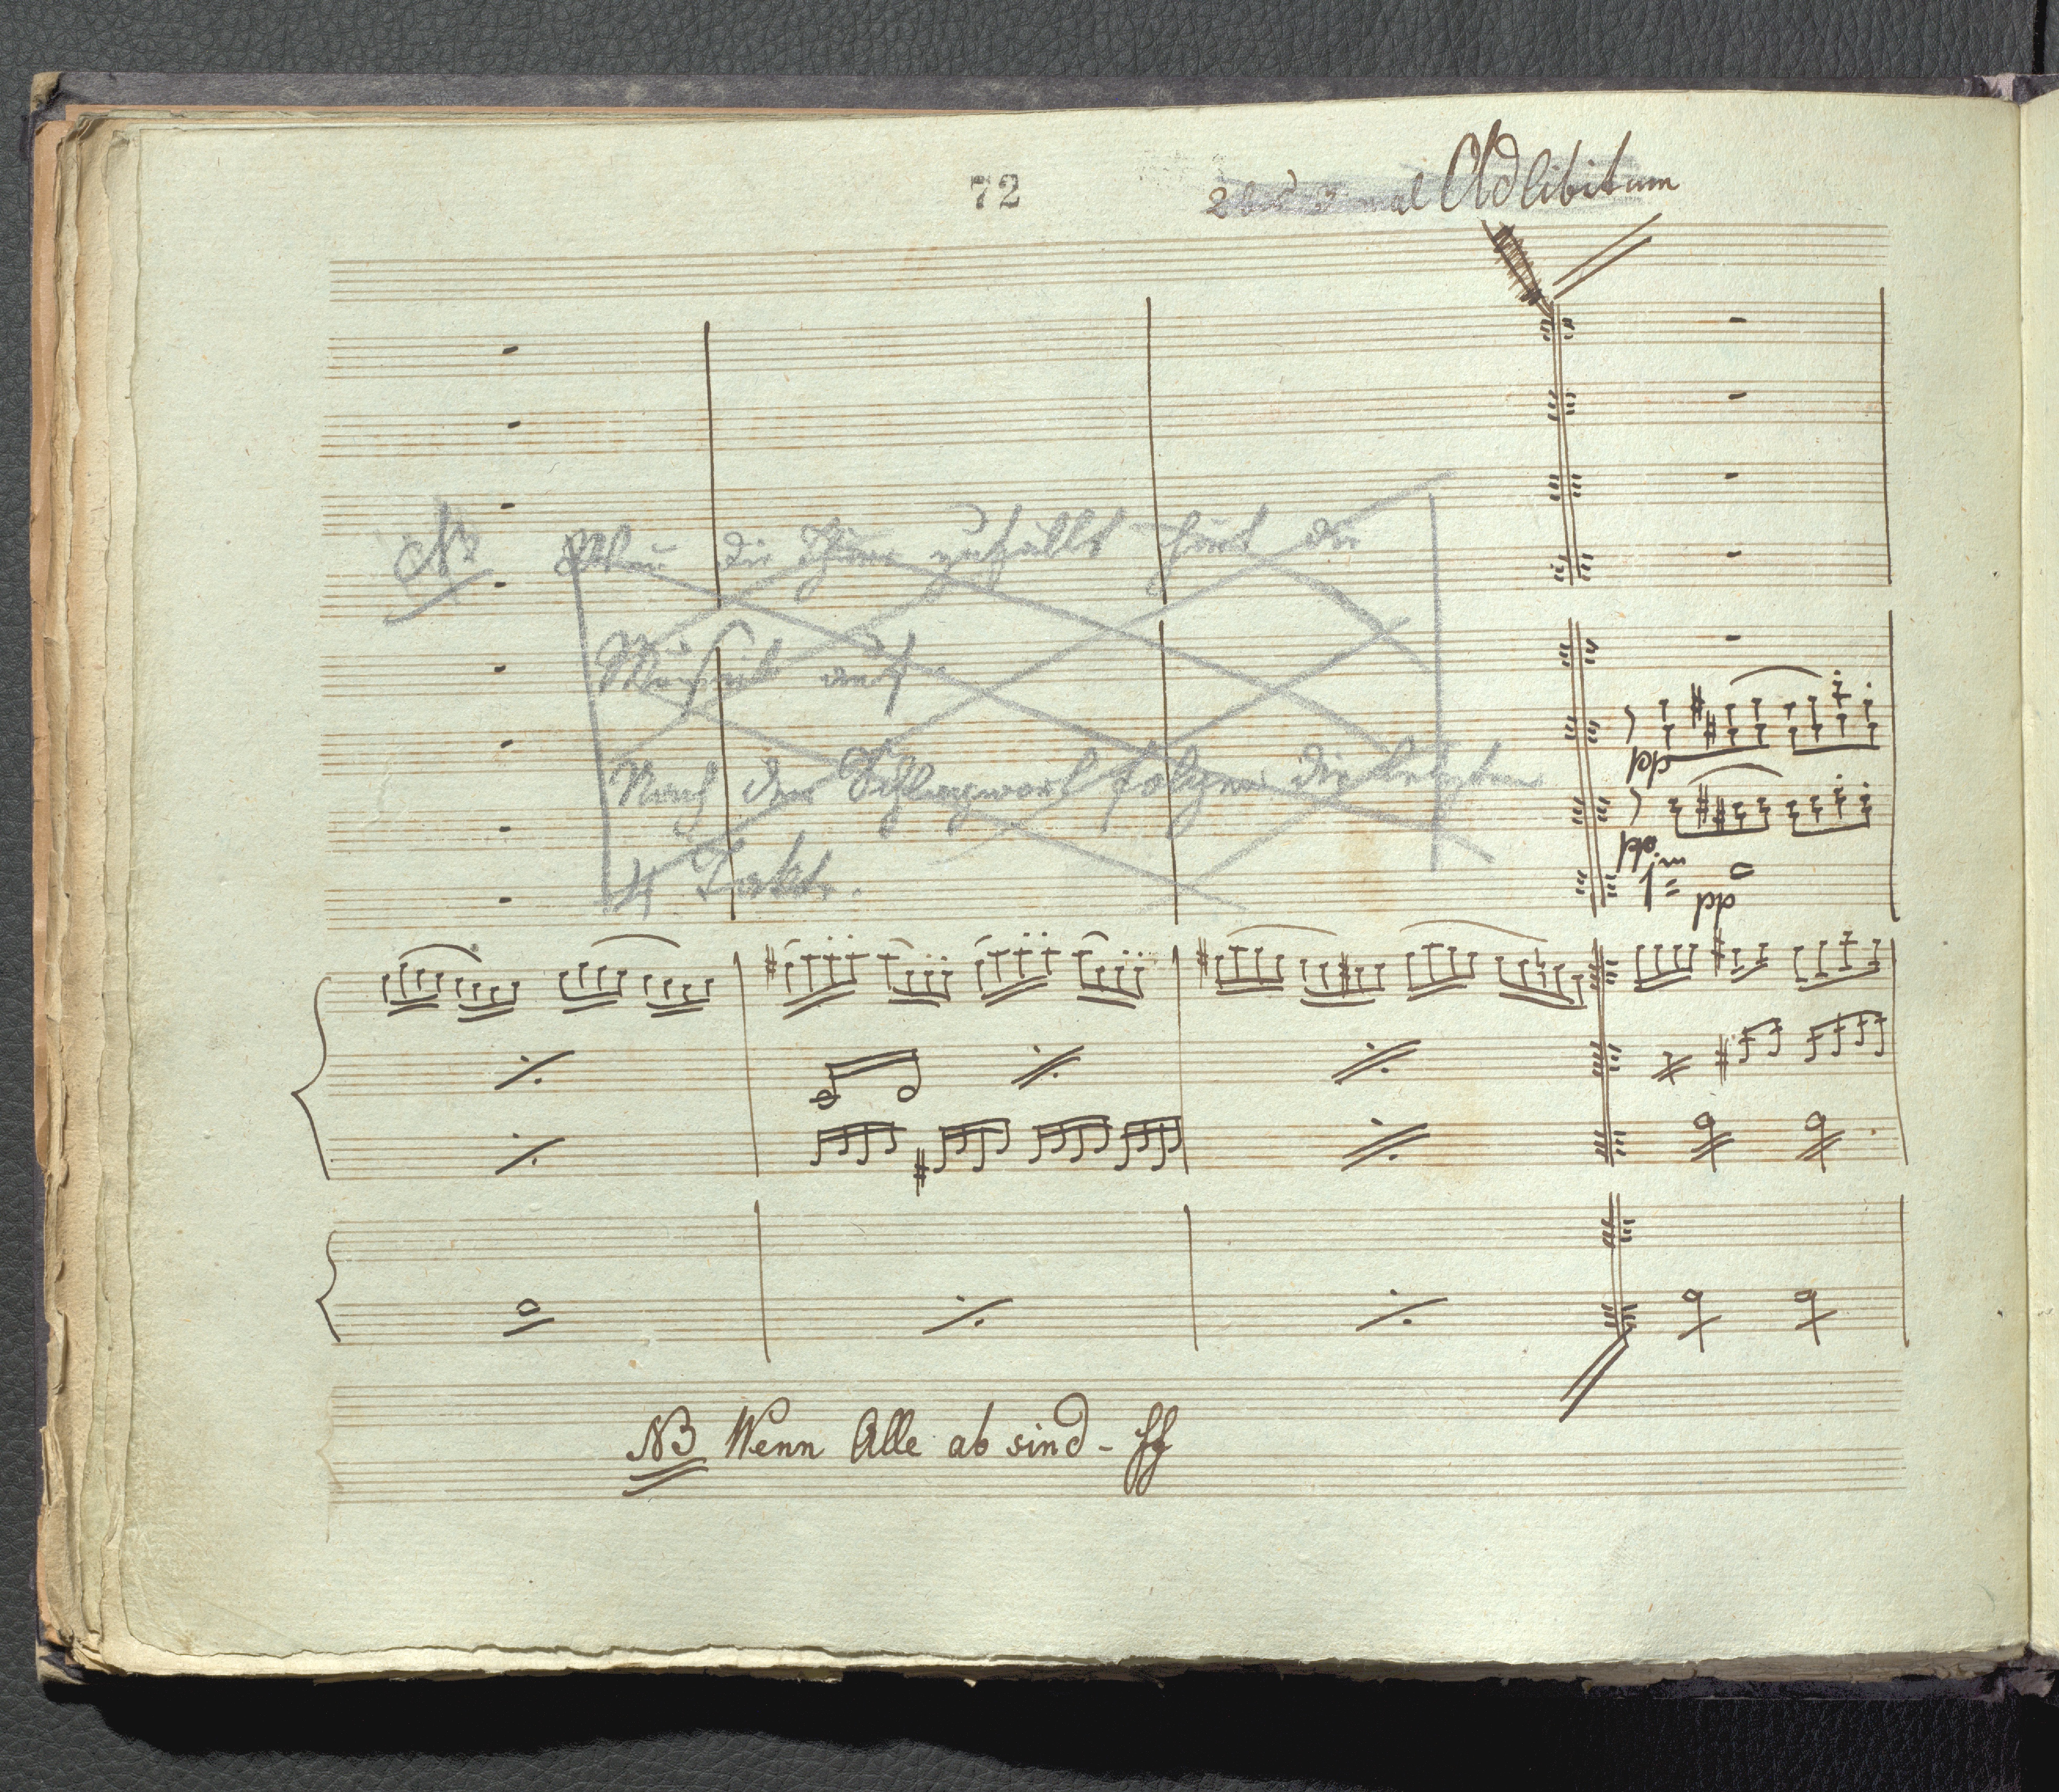 72
2 bis 3 mal Adlibitum
NB Wenn die Thüre zufällt hört die
Musik auf
Nach dem Schlagwort folgen die letzten
4 Takte.
pp
pp
1mo
pp
NB Wenn Alle ab sind - ff